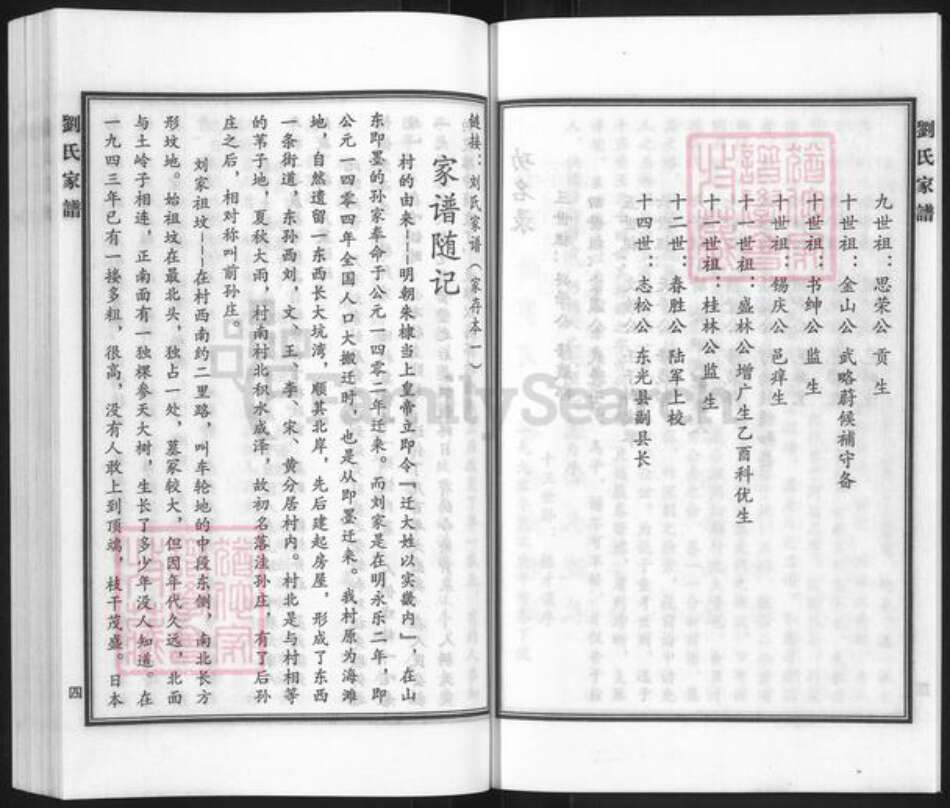 劉氏家譜
九世祖：思荣公 贡 生
十世祖：金山公 武略蔚候補守备
十世祖：书绅公 监 生
十世祖：锡庆公 邑庠生
十一世祖：盛林公 增广生乙酉科优生
十一世祖：桂林公 监 生
十二世：春胜公 陆军上校
十四世：志松公 东光县副县长
链接：刘氏家谱（家存本一）
家谱随记
村的由来——明朝朱棣当上皇帝立即令「迁大姓以实畿内」，在山
东即墨的孙家奉命于公元一四零二年迁来。而刘家是在明永乐二年，即
公元一四零四年全国人口大搬迁时，也是从即墨迁来。我村原为海滩
地，自然遗留一东西长大坑湾，顺其北岸，先后建起房屋，形成了东西
一条街道，东孙西刘，文、王、李、宋、黄分居村内。村北是与村相等
的苇子地，夏秋大雨，村南村北积水成泽，故初名落洼孙庄，有了后孙
庄之后，相对称叫前孙庄。
刘家祖坟——在村西南约二里路，叫车轮地的中段东侧，南北长方
形坟地。始祖坟在最北头，独占一处，墓冢较大，但因年代久远，北面
与土岭子相连，正南面有一独棵参天大树，生长了多少年没人知道。在
一九四三年已有一搂多粗，很高，没有人敢上到顶端，枝干茂盛。日本
劉氏家譜
四
FamilySearch